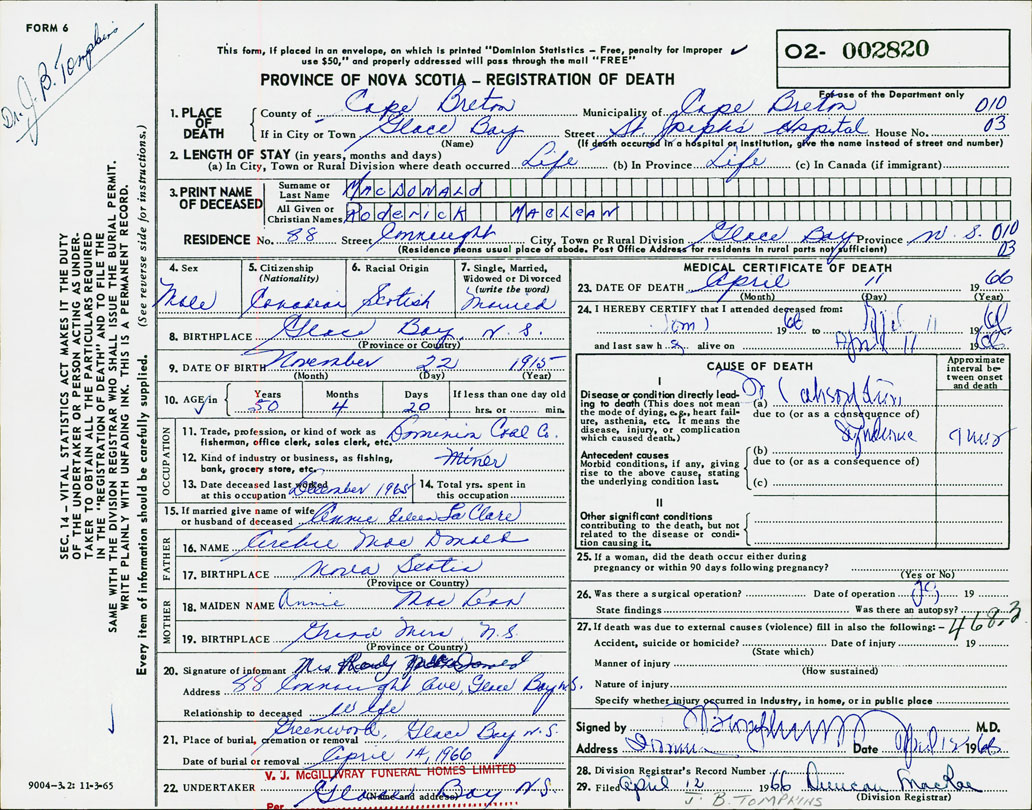 FORM 6
Dr. J. B. Tompkins
This form, if placed in an envelope, on which is printed "Dominion Statistics – Free, penalty for improper
use $50," and properly addressed will pass through the mail "FREE"
O2- 002820
PROVINCE OF NOVA SCOTIA – REGISTRATION OF DEATH
For use of the Department only
1. PLACE OF DEATH
County of Cape Breton Municipality of Cape Breton 010
If in City or Town Glace Bay Street St Joseph's Hospital House No. 03
(Name) (If death occurred in a hospital or institution, give the name instead of street and number)
2. LENGTH OF STAY (in years, months and days)
(a) In City, Town or Rural Division where death occurred Life (b) In Province Life (c) In Canada (if immigrant)
3. PRINT NAME OF DECEASED
Surname or Last Name MACDONALD
All Given or Christian Names RODERICK MACLEAN
RESIDENCE No. 88 Street Connaught City, Town or Rural Division Glace Bay Province N. S. 010
(Residence means usual place of abode. Post Office Address for residents in rural parts not sufficient) 03
4. Sex
Male
5. Citizenship
(Nationality)
Canadian
6. Racial Origin
Scotish
7. Single, Married, Widowed or Divorced
(write the word)
Married
8. BIRTHPLACE Glace Bay, N. S.
(Province or Country)
9. DATE OF BIRTH November 22 1915
(Month) (Day) (Year)
10. AGE in
Years 50
Months 4
Days 20
If less than one day old
hrs. or min.
OCCUPATION
11. Trade, profession, or kind of work as
fisherman, office clerk, sales clerk, etc. Dominion Coal Co.
12. Kind of industry or business, as fishing,
bank, grocery store, etc. Miner
13. Date deceased last worked
at this occupation December 1965
14. Total yrs. spent in
this occupation
15. If married give name of wife
or husband of deceased Annie Eileen La Clare
FATHER
16. NAME Archie Mac Donald
17. BIRTHPLACE Nova Scotia
(Province or Country)
MOTHER
18. MAIDEN NAME Annie Mac
19. BIRTHPLACE Grand Mira, N.S.
(Province or Country)
20. Signature of informant Mrs.
Address 88 Connaught Ave, Glace Bay N.S.
Relationship to deceased Wife
21. Place of burial, cremation or removal Greenwood, Glace Bay N.S.
Date of burial or removal April 14, 1966
V. J. McGILLIVRAY FUNERAL HOMES LIMITED
22. UNDERTAKER Glace Bay N.S.
(Name and address)
Per
MEDICAL CERTIFICATE OF DEATH
23. DATE OF DEATH April 11 1966
(Month) (Day) (Year)
24. I HEREBY CERTIFY that I attended deceased from:
1966 to April 11 19
and last saw h alive on April 11 1966
CAUSE OF DEATH
Approximate interval between onset and death
I
Disease or condition directly leading to death (This does not mean
the mode of dying, e.g., heart failure, asthenia, etc. It means the
disease, injury, or complication
which caused death.)
(a)
due to (or as a consequence of)
Syndrome
Antecedent causes
Morbid conditions, if any, giving
rise to the above cause, stating
the underlying condition last.
(b)
due to (or as a consequence of)
(c)
II
Other significant conditions
contributing to the death, but not
related to the disease or condition causing it.
25. If a woman, did the death occur either during
pregnancy or within 90 days following pregnancy?
(Yes or No)
26. Was there a surgical operation? Date of operation 19
State findings Was there an autopsy?
27. If death was due to external causes (violence) fill in also the following: - 468.3
Accident, suicide or homicide? Date of injury 19
(State which)
Manner of injury
(How sustained)
Nature of injury
Specify whether injury occurred in Industry, in home, or in public place
Signed by M.D.
Address Date April 1966
28. Division Registrar's Record Number
29. Filed April 12 1966 Duncan MacRae
(Division Registrar)
J. B. TOMPKINS
SEC. 14 – VITAL STATISTICS ACT MAKES IT THE DUTY
OF THE UNDERTAKER OR PERSON ACTING AS UNDER-
TAKER TO OBTAIN ALL THE PARTICULARS REQUIRED
IN THE "REGISTRATION OF DEATH" AND TO FILE THE
SAME WITH THE DIVISION REGISTRAR WHO SHALL ISSUE THE BURIAL PERMIT.
WRITE PLAINLY WITH UNFADING INK. THIS IS A PERMANENT RECORD.
Every item of information should be carefully supplied. (See reverse side for instructions.)
9004-3.2: 11-3-65